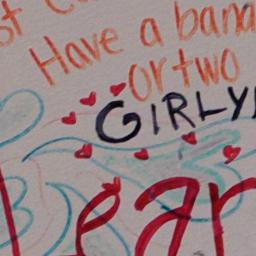 Have a bana
or two
GIRLY
ear